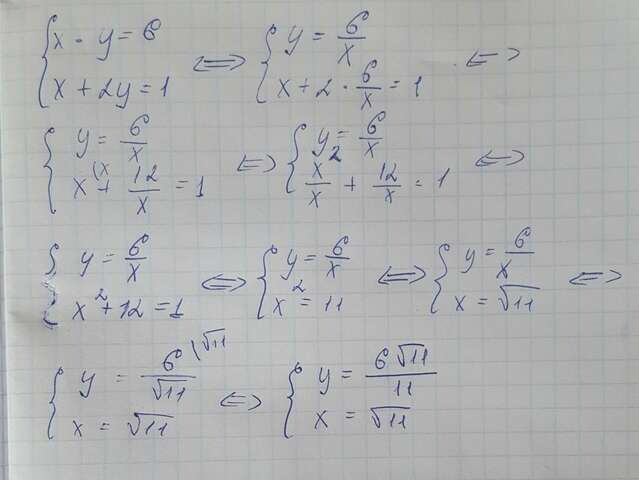 { x · y = 6 ; x + 2y = 1 } ⇔ { y = 6/x ; x + 2 · 6/x = 1 } ⇔
{ y = 6/x ; x (x + 12/x = 1 } ⇔ { y = 6/x ; x²/x + 12/x = 1 } ⇔
{ y = 6/x ; x² + 12 = 1 } ⇔ { y = 6/x ; x² = 11 } ⇔ { y = 6/x ; x = √11 } ⇔
{ y = 6/√11 (√11 ; x = √11 } ⇔ { y = 6√11/11 ; x = √11 }